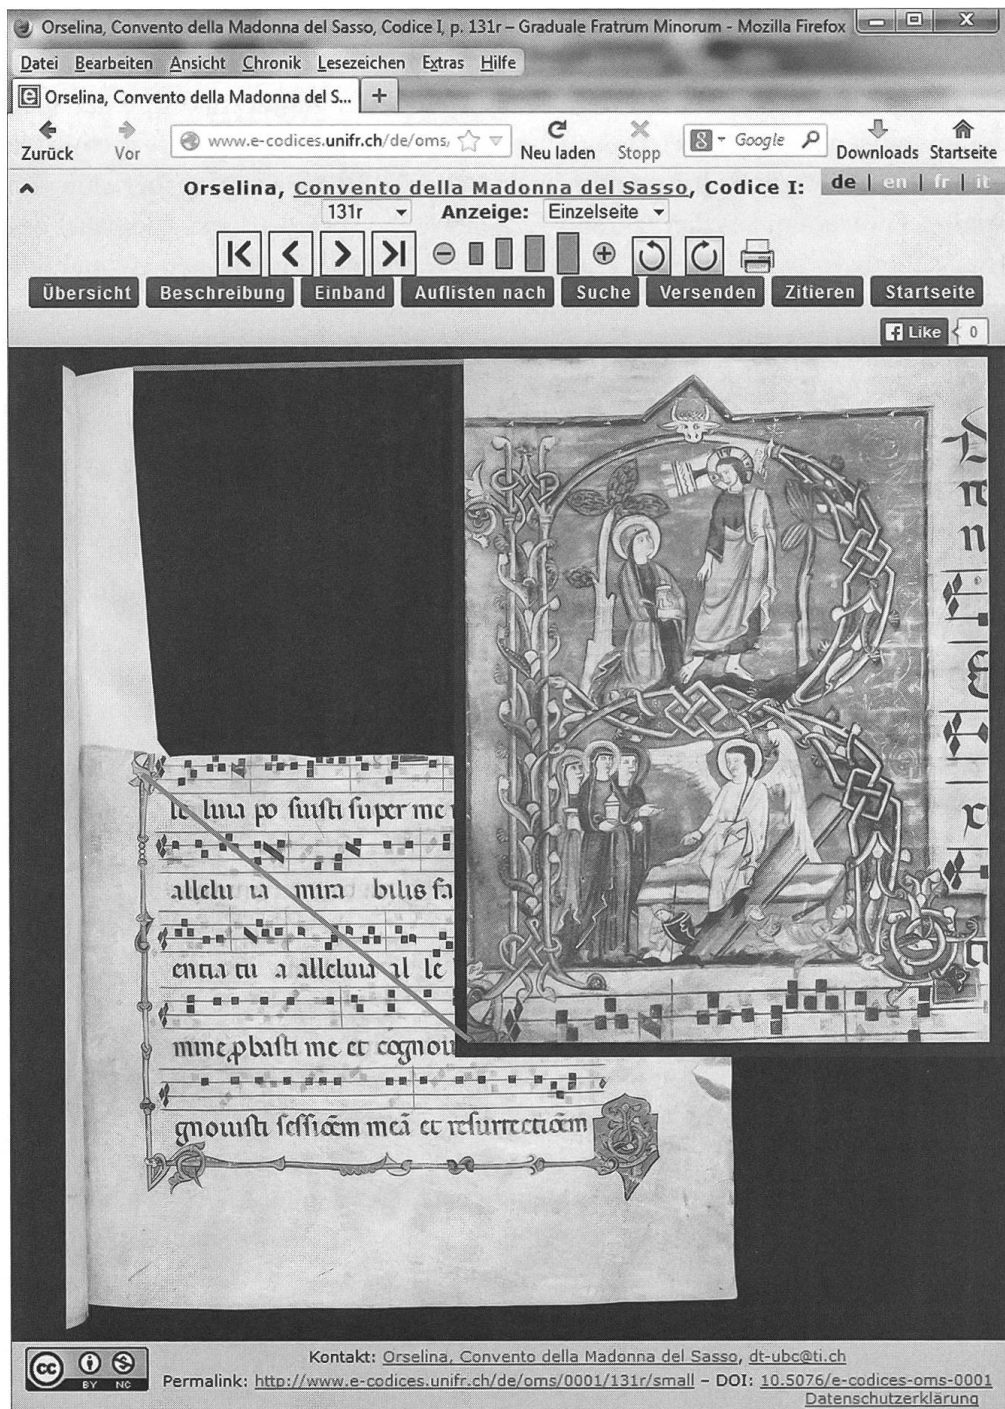 Orselina, Convento della Madonna del Sasso, Codice I, p. 131r – Graduale Fratrum Minorum - Mozilla Firefox
Datei Bearbeiten Ansicht Chronik Lesezeichen Extras Hilfe
Orselina, Convento della Madonna del S... +
Zurück Vor www.e-codices.unifr.ch/de/oms, Neu laden Stopp 8 Google Downloads Startseite
Orselina, Convento della Madonna del Sasso, Codice I: de | en | fr | it
131r Anzeige: Einzelseite
Übersicht Beschreibung Einband Auflisten nach Suche Versenden Zitieren Startseite
Like 0
le luia po suisti super me
allelu ia mira bilis sa
entia tu a alleluia al le
mine ꝓbasti me et cognoui
gnouisti sessiōem meā et resurrectiōem
cc BY NC
Kontakt: Orselina, Convento della Madonna del Sasso, dt-ubc@ti.ch
Permalink: http://www.e-codices.unifr.ch/de/oms/0001/131r/small – DOI: 10.5076/e-codices-oms-0001
Datenschutzerklärung